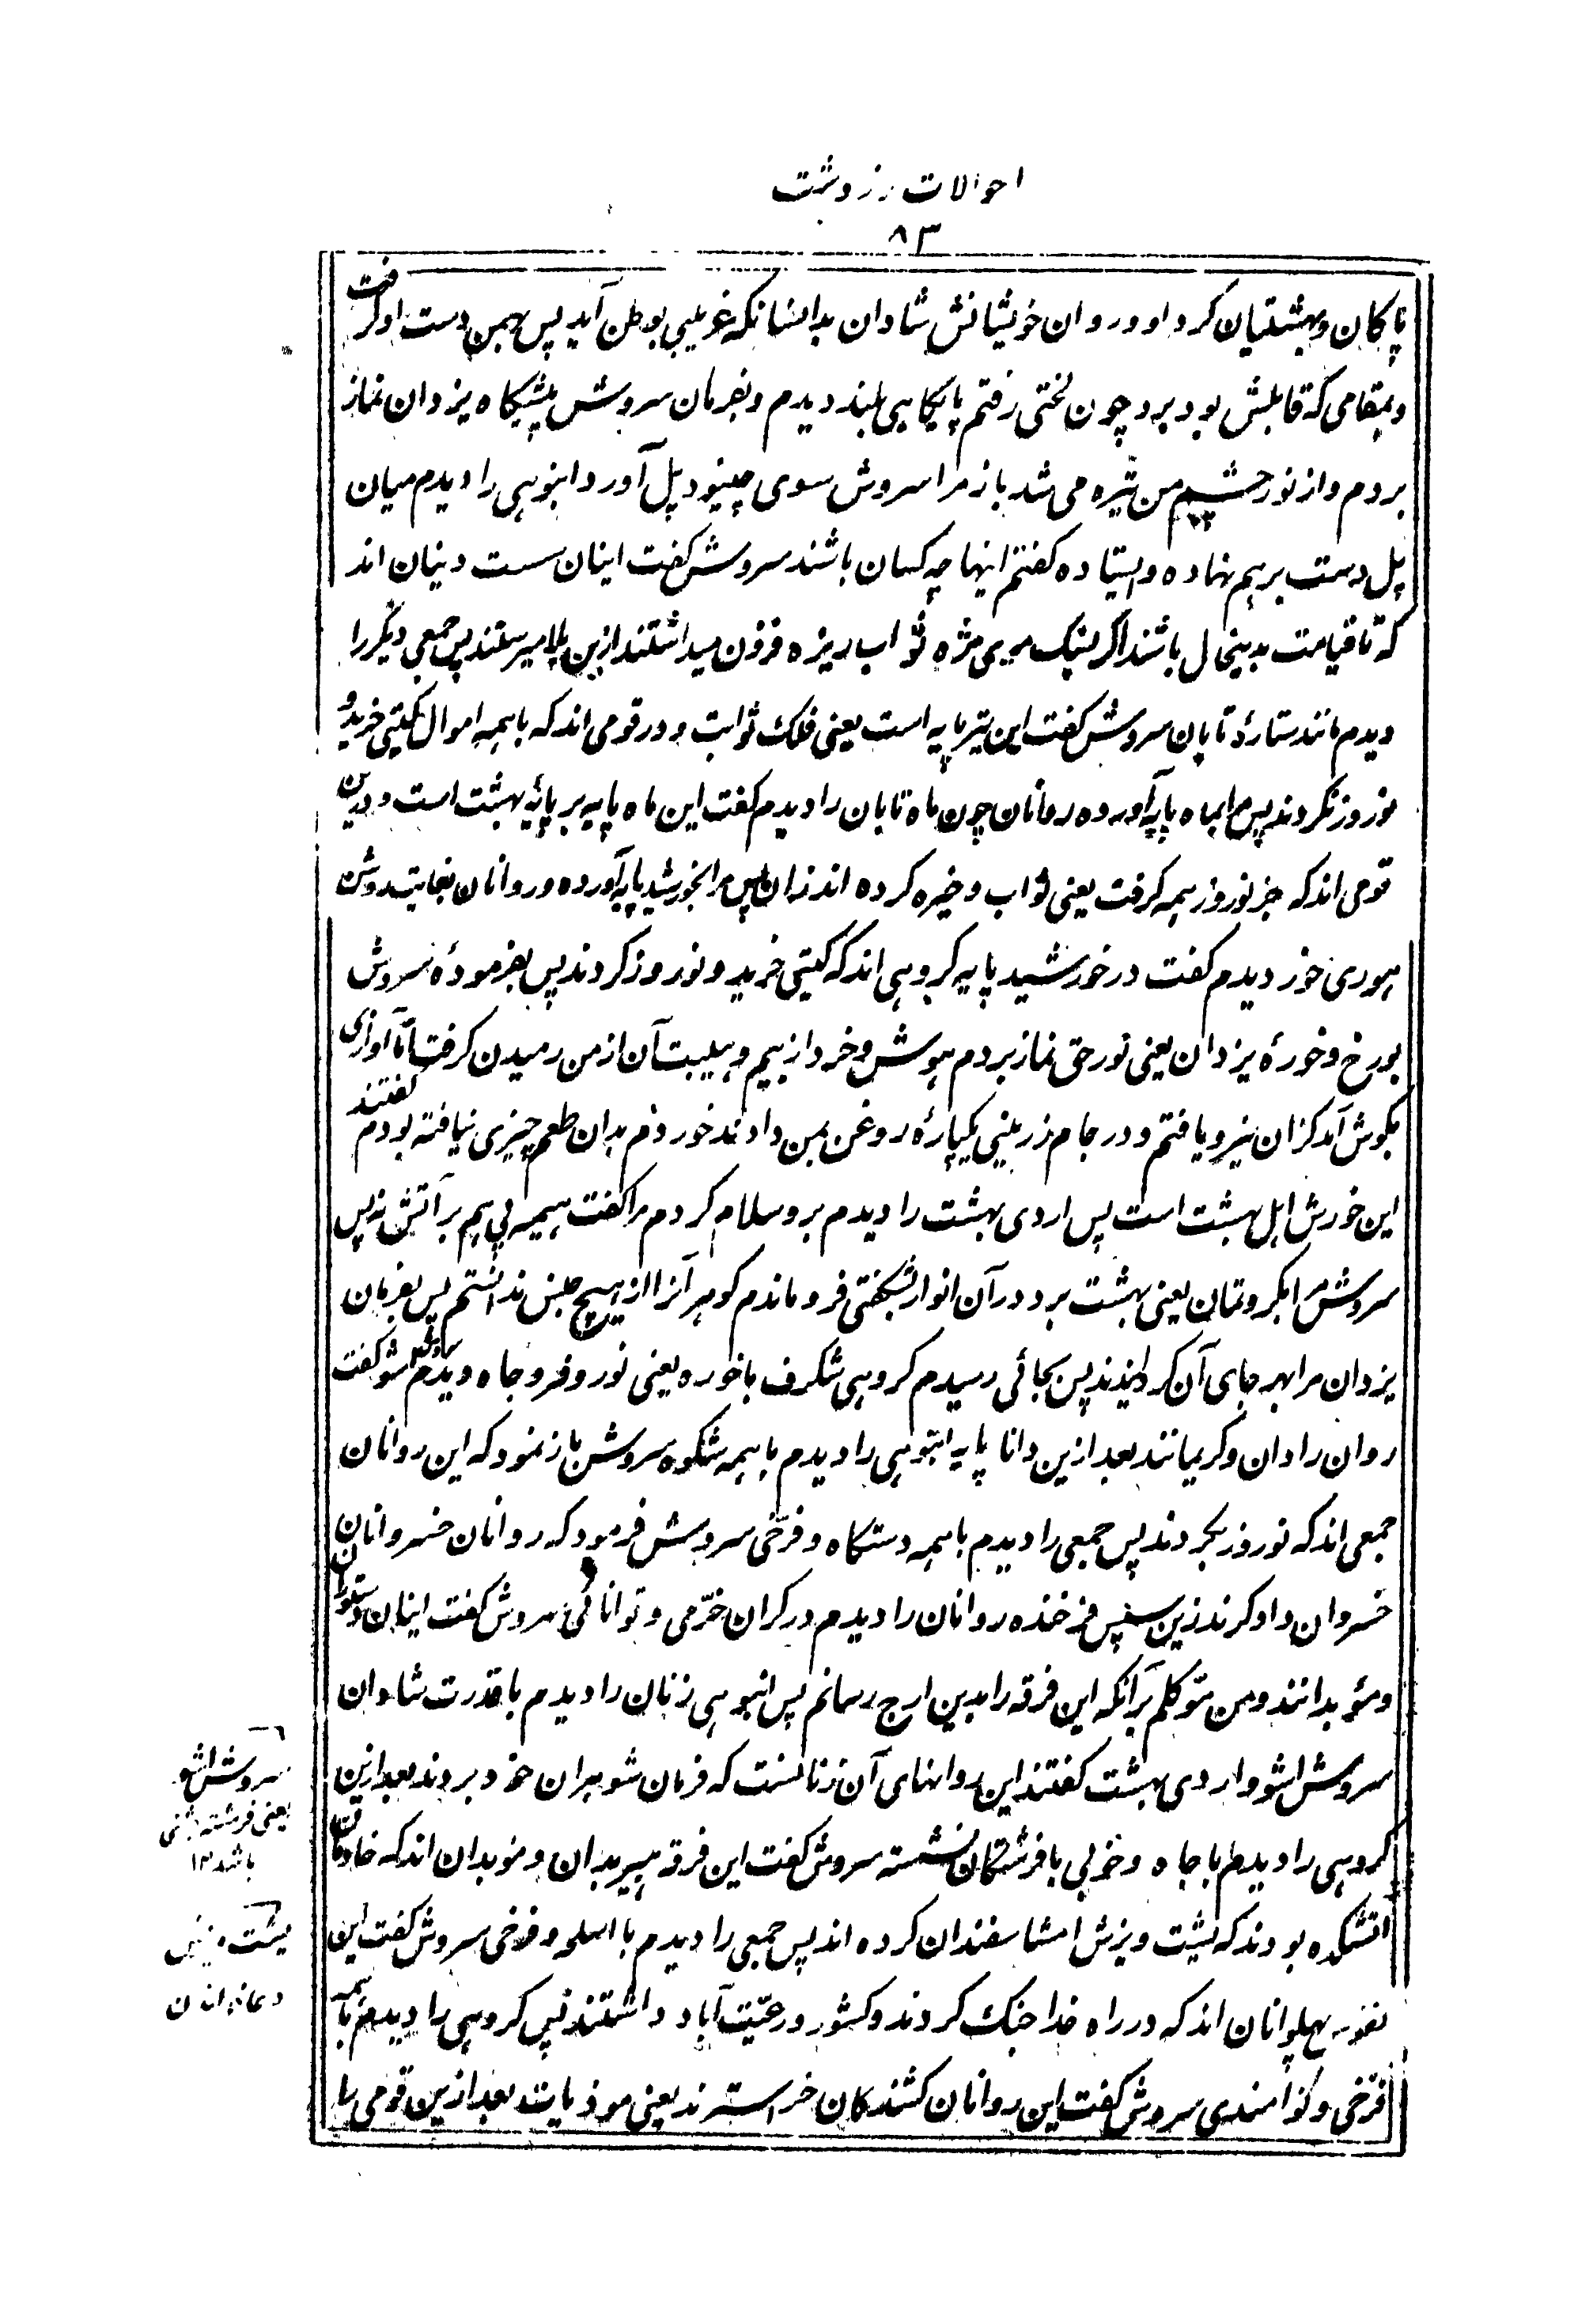 احوالات زردشت
۸۳
پاکان وبهشتیان گرد او وروان خویشانش شادان بدانسانکه غریبی بوطن آید پس بهمن دست او گرفت
وبمقامی که قابلش بود برد چون لختی رفتم پایگاهی بلند دیدم وبفرمان سروش پیشگاه یزدان نماز
بردم واز نور چشم من تیره می شد باز مرا سروش سوی چینود پل آورد انبوهی را دیدم میان
پل دست برهم نهاده وایستاده گفتم اینها چه کسان باشند سروش گفت اینان سست دینان اند
که تا قیامت بدینحال باشند اگر تنک مویی مژه ثواب ریزه فزون میداشتند ازین بلا میرستند پس جمعی دیگر را
دیدم مانند ستارهٔ تابان سروش گفت این ستر پایه است یعنی فلک ثوابت و در و قومی اند که باهمه اموال گیتی خرید و
نوروز نکردند پس مرا بماه پایه آورده روانان چون ماه تابان را دیدم گفت این ماه پایه بر پایهٔ بهشت است و درین
قومی اند که جز نوروز همه کرفت یعنی ثواب ذخیره کرده اند زان پس مرا بخورشید پایه آورده و روانان بغایت روشن
هوری خور دیدم گفت در خورشید پایه گروهی اند که گیتی خرید و نوروز کردند پس بفرمودهٔ سروش
بورخ و خورهٔ یزدان یعنی نور حق نماز بردم هوش و خرد از بیم و هیبت آن از من رمیدن گرفت تا آوازی
بگوش آمد کزان نیرو یافتم و در جام زرینی یکپارهٔ روغن بمن دادند خوردم بدان طعم چیزی نیافته بودم گفتند
این خورش اهل بهشت است پس اردی بهشت را دیدم برو سلام کردم مرا گفت هیمه بی نم بر آتش نه پس
سروش مرا بگروتمان یعنی بهشت برد در آن انوار بشگفتی فرو ماندم گوهر آنرا از هیچ جنس ندانستم پس بفرمان
یزدان مرا بهر جای آن گردانیدند پس بجائی رسیدم گروهی شگرف باخوره یعنی نور و فر و جاه دیدم سروش اشو گفت
روان رادان و کریمانند بعد ازین دانا پایه انبوهی را دیدم باهمه شکوه سروش باز نمود که این روانان
جمعی اند که نوروز بکردند پس جمعی را دیدم باهمه دستگاه و فرّخی سروش فرمود که روانان خسروانان
خسروان دادگرند زین سپس فرخنده روانان را دیدم در گران خرّمی و توانائی سروش گفت اینان دستوران
و مؤبدانند و من متوکلم بر آنکه این فرقه را بدین ارج رسانم پس انبوهی زنان را دیدم باقدرت شادان
سروش اشو و اردی بهشت گفتند این روانهای آن زنانست که فرمان شوهران خود بردند بعد ازین
گروهی را دیدم باجاه و خوبی بافرشتگان نشسته سروش گفت این فرقه هیربدان و موبدان اند که خادمان
آتشکده بودند که یشت ویزش امشاسفندان کرده اند پس جمعی را دیدم با اسلحه و فرخی سروش گفت این
نفوس پهلوانان اند که در راه خدا جنگ کردند و کشور و رعیّت آباد داشتند پس گروهی را دیدم باهمه
فرّخی و خرامندی سروش گفت این روانان کشندگان خراسترند یعنی موذیات بعد ازین قومی را
سروش اشو
یعنی فرشته
باشد ۱۲
یشت
دعا خواندن